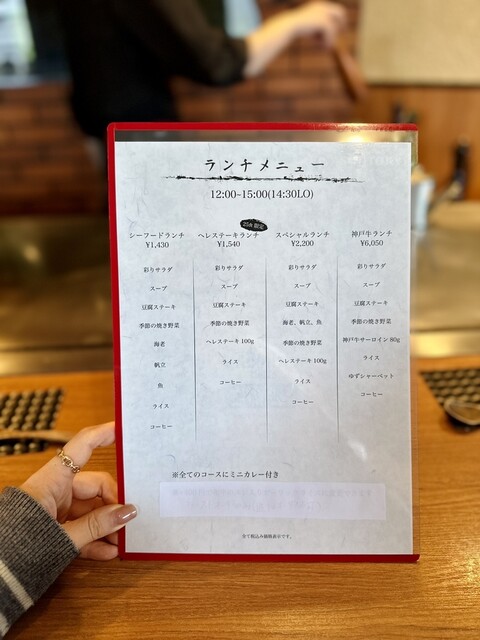 ランチメニュー
12:00~15:00(14:30LO)
シーフードランチ
¥1,430
彩りサラダ
スープ
豆腐ステーキ
季節の焼き野菜
海老
帆立
魚
ライス
コーヒー
限定
ヘレステーキランチ
¥1,540
彩りサラダ
スープ
豆腐ステーキ
季節の焼き野菜
ヘレステーキ100g
ライス
コーヒー
スペシャルランチ
¥2,200
彩りサラダ
スープ
豆腐ステーキ
海老、帆立、魚
季節の焼き野菜
ヘレステーキ100g
ライス
コーヒー
神戸牛ランチ
¥6,050
彩りサラダ
スープ
豆腐ステーキ
季節の焼き野菜
神戸牛サーロイン80g
ライス
ゆずシャーベット
コーヒー
※全てのコースにミニカレー付き
全て税込み価格表示です。